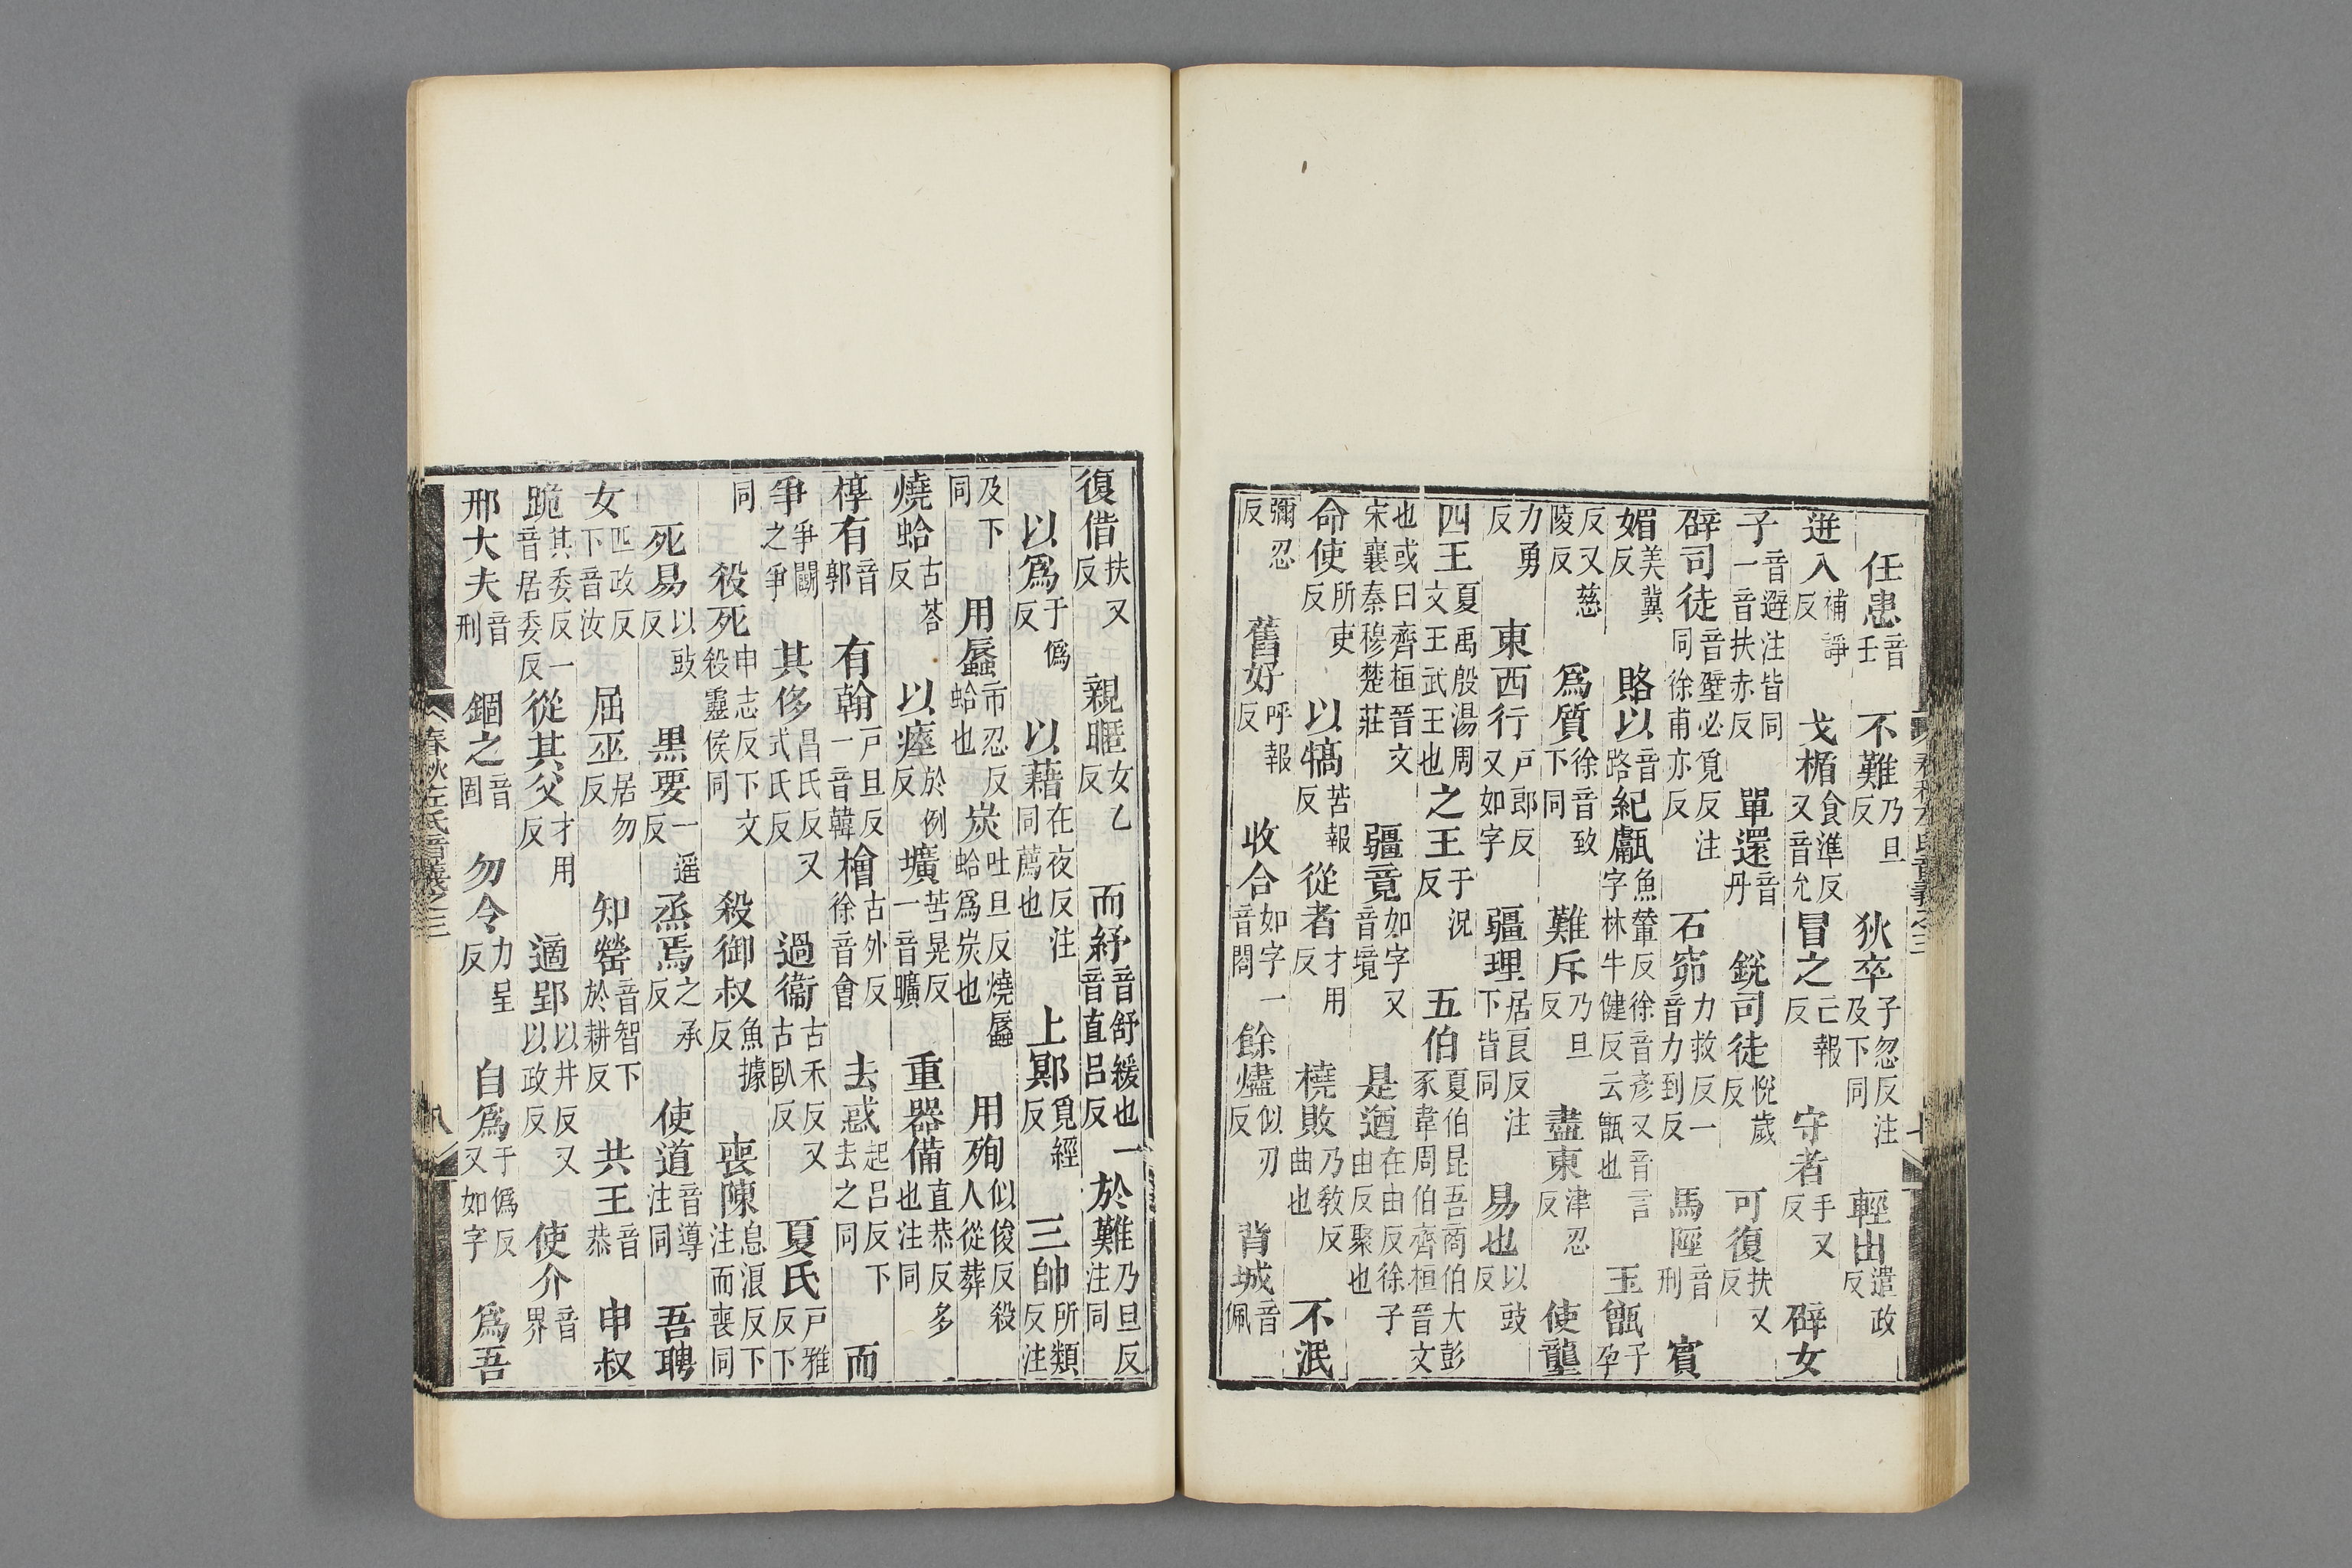 任患音壬 不難乃旦反 狄卒子忽反注及下同 輕出遣政反
迸入補諍反 戈楯食準反又音允 冒之亡報反 守者手又反 辟女
子音避注皆同一音扶赤反 單還音丹 銳司徒悅歲反 可復扶又反
辟司徒音壁必覓反注同徐甫亦反 石窌力救反一音力到反 馬陘音刑 賓
媚美冀反 賂以音路 紀甗魚輦反徐音彥又音言字林牛健反云甑也 玉甑子孕
反又慈陵反 爲質徐音致下同 難斥乃旦反 盡東津忍反 使壟
力勇反 東西行戶郎反又如字 疆理居良反注下皆同 易也以豉反
四王夏禹殷湯周文王武王也 之王于況反 五伯夏伯昆吾商伯大彭豕韋周伯齊桓晉文
也或曰齊桓晉文宋襄秦穆楚莊 疆竟如字又音境 是遒在由反徐子由反聚也
命使所吏反 以犒苦報反 從者才用反 橈敗乃敎反曲也 不泯
彌忍反 舊好呼報反 收合如字一音閤 餘燼似刃反 背城音佩
復借扶又反 親暱女乙反 而紓音舒緩也一音直呂反 於難乃旦反注同
以爲于僞反 以藉在夜反注同薦也 上鄍覓經反 三帥所類反注
及下同 用蜃市忍反蛤也 炭吐旦反燒蜃蛤爲炭也 用殉似俊反殺人從葬
燒蛤古荅反 以瘞於例反 壙苦晃反一音曠 重器備直恭反多也注同
椁有音郭 有翰戶旦反一音韓 檜古外反徐音會 去惑起呂反下去之同 而
爭爭鬭之爭 其侈昌氏反又式氏反 過衞古禾反又古臥反 夏氏戶雅反下
同 殺死申志反下文殺靈侯同 殺御叔魚據反 喪陳息浪反下注而喪同
死易以豉反 黑要一遥反 烝焉之承反 使道音導注同 吾聘
女匹政反下音汝 屈巫居勿反 知罃音智下於耕反 共王音恭 申叔
跪其委反一音居委反 從其父才用反 適郢以井反又以政反 使介音界
邢大夫音刑 錮之音固 勿令力呈反 自爲于僞反又如字 爲吾
春秋左氏音義之三 八